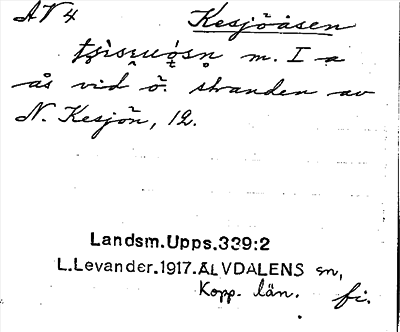 ÄV4 Kesjöåsen
m. I a
ås vid ö. stranden av
N. Kesjön, 12.
Landsm.Upps.339:2
L.Levander.1917.ÄLVDALENS sn,
Kopp. län. fi.